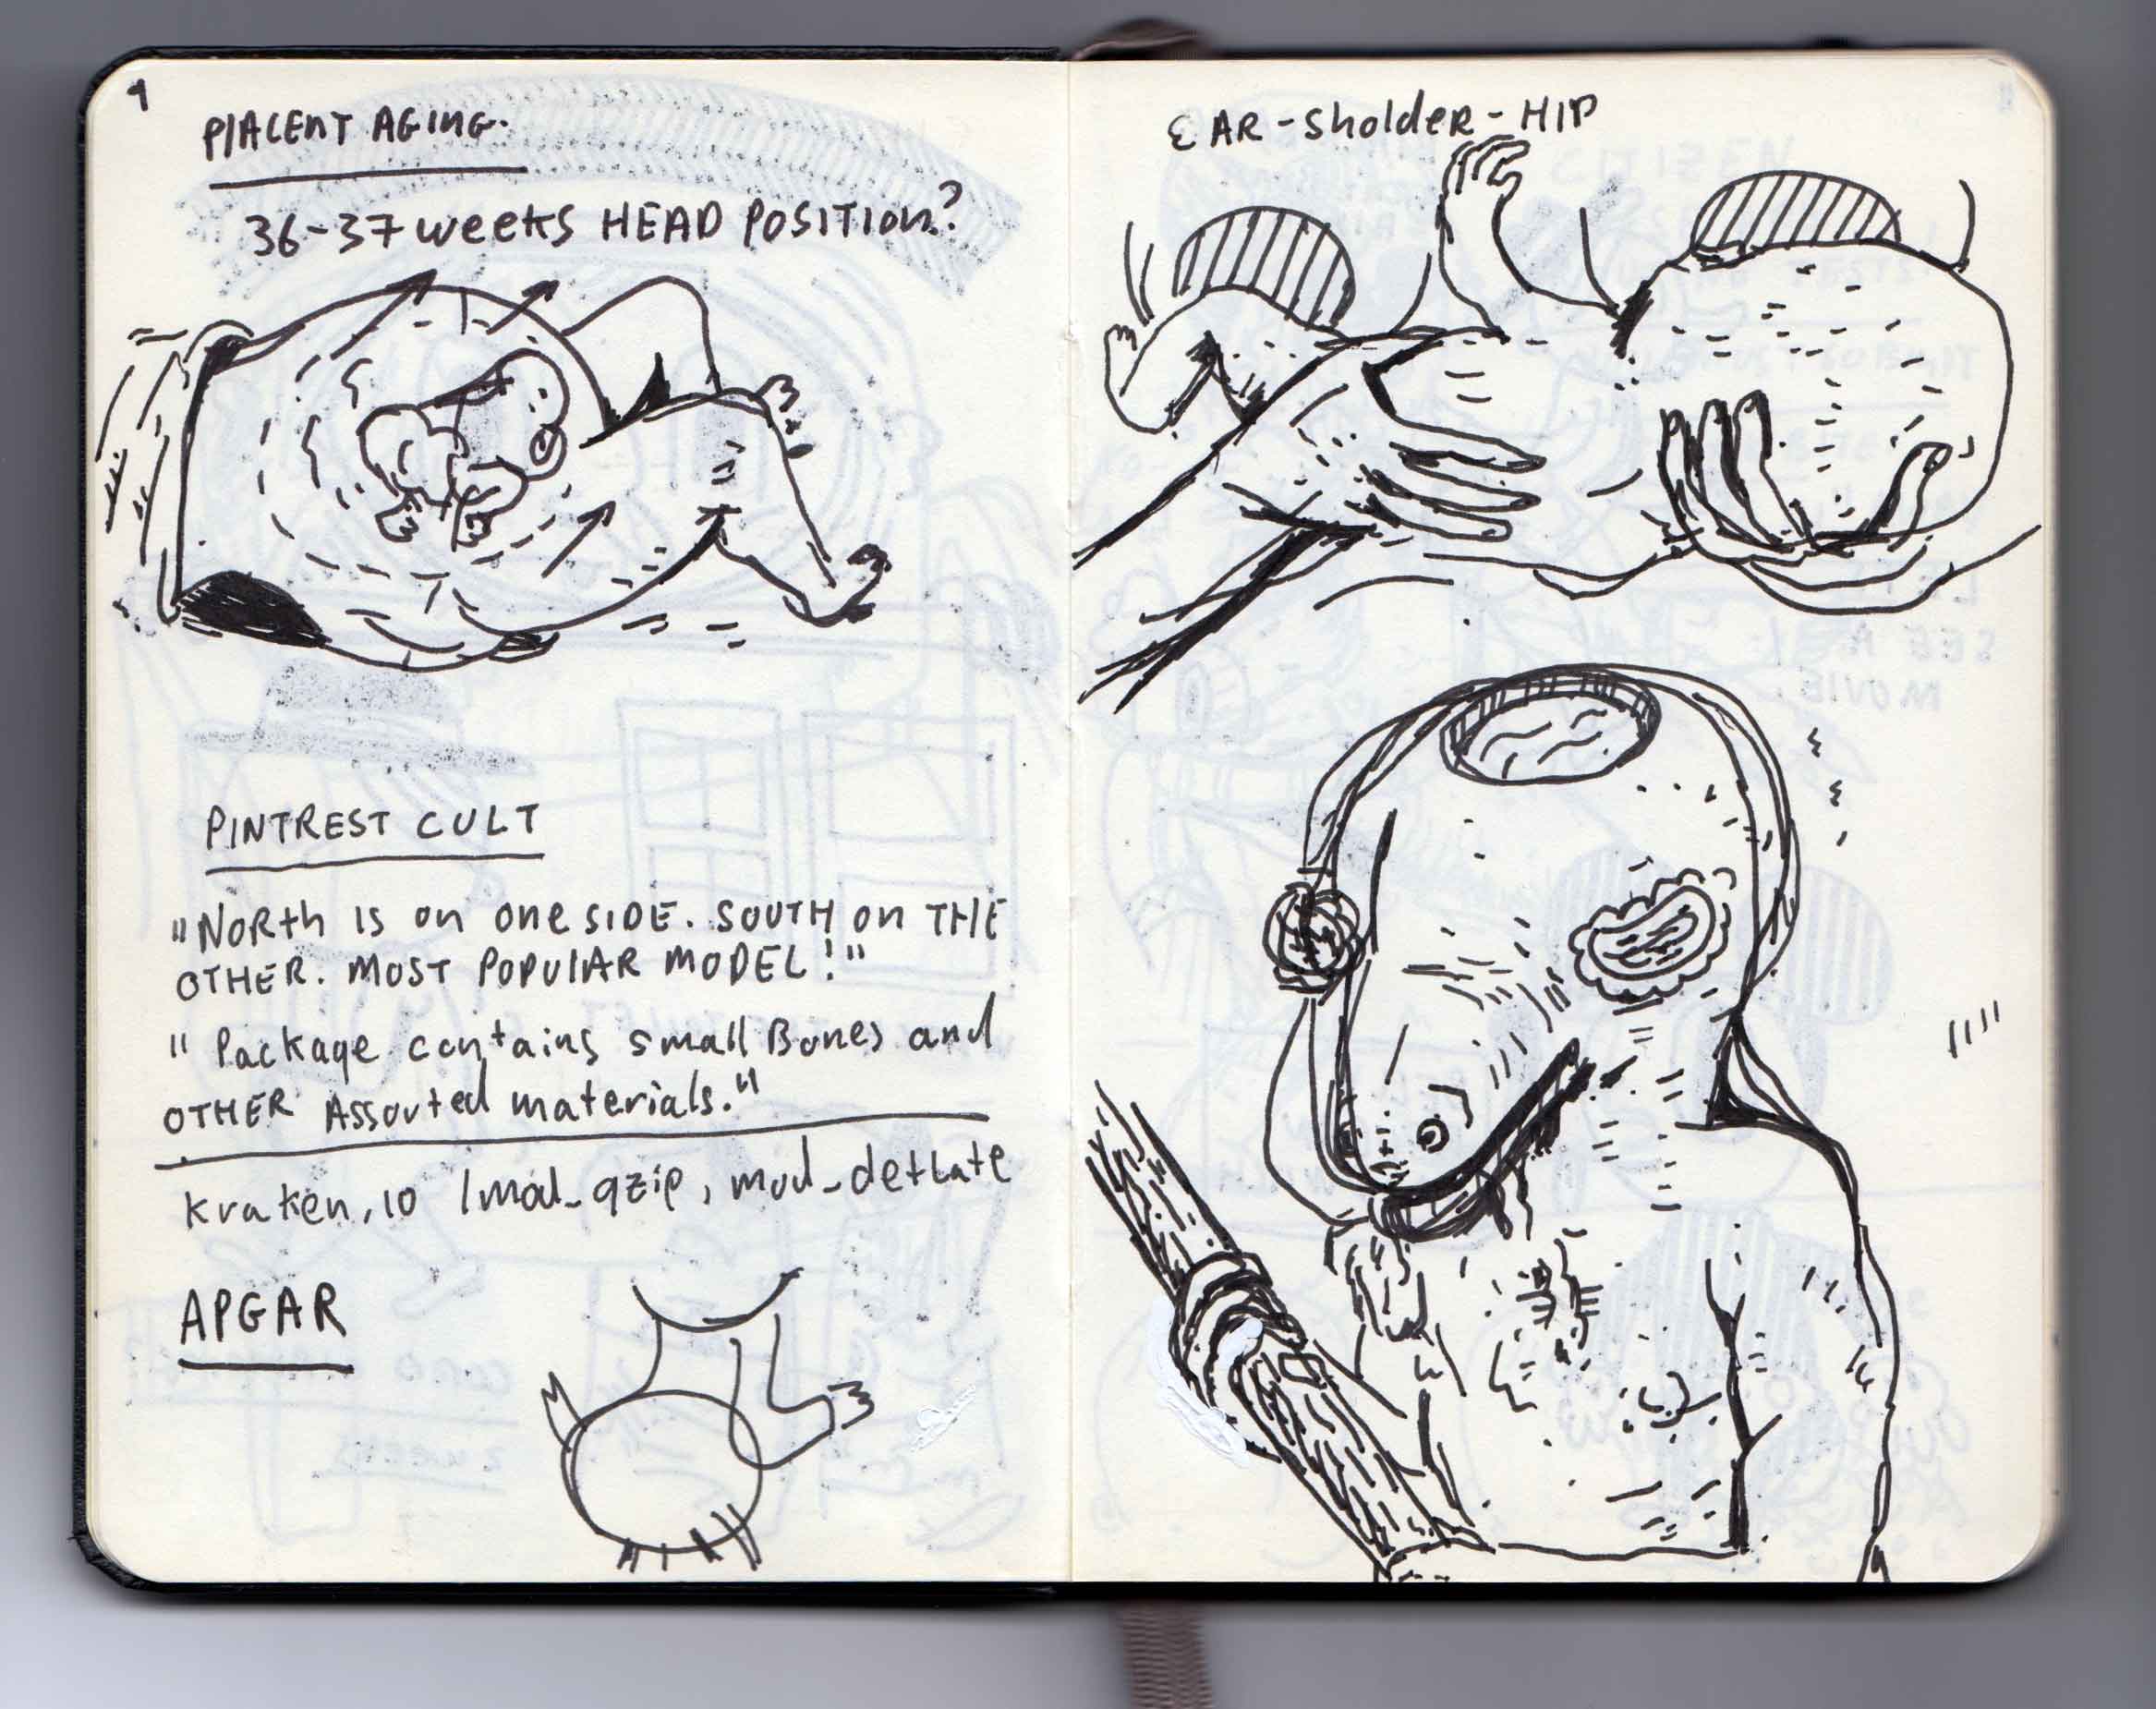 9
PlACEnT AGING.
36-37 weeks HEAD POSITION?
PINTREST CULT
"NORth IS on one SIDE. SOUTH on THE
OTHER. MOST POPUlAR MODEL!"
"Package contains small Bones and
OTHER Assorted materials."
kraken.io /mod_gzip, mod_deflate
APGAR
EAR-Sholder-HIP
SEE A
MOVIE
2 weeks